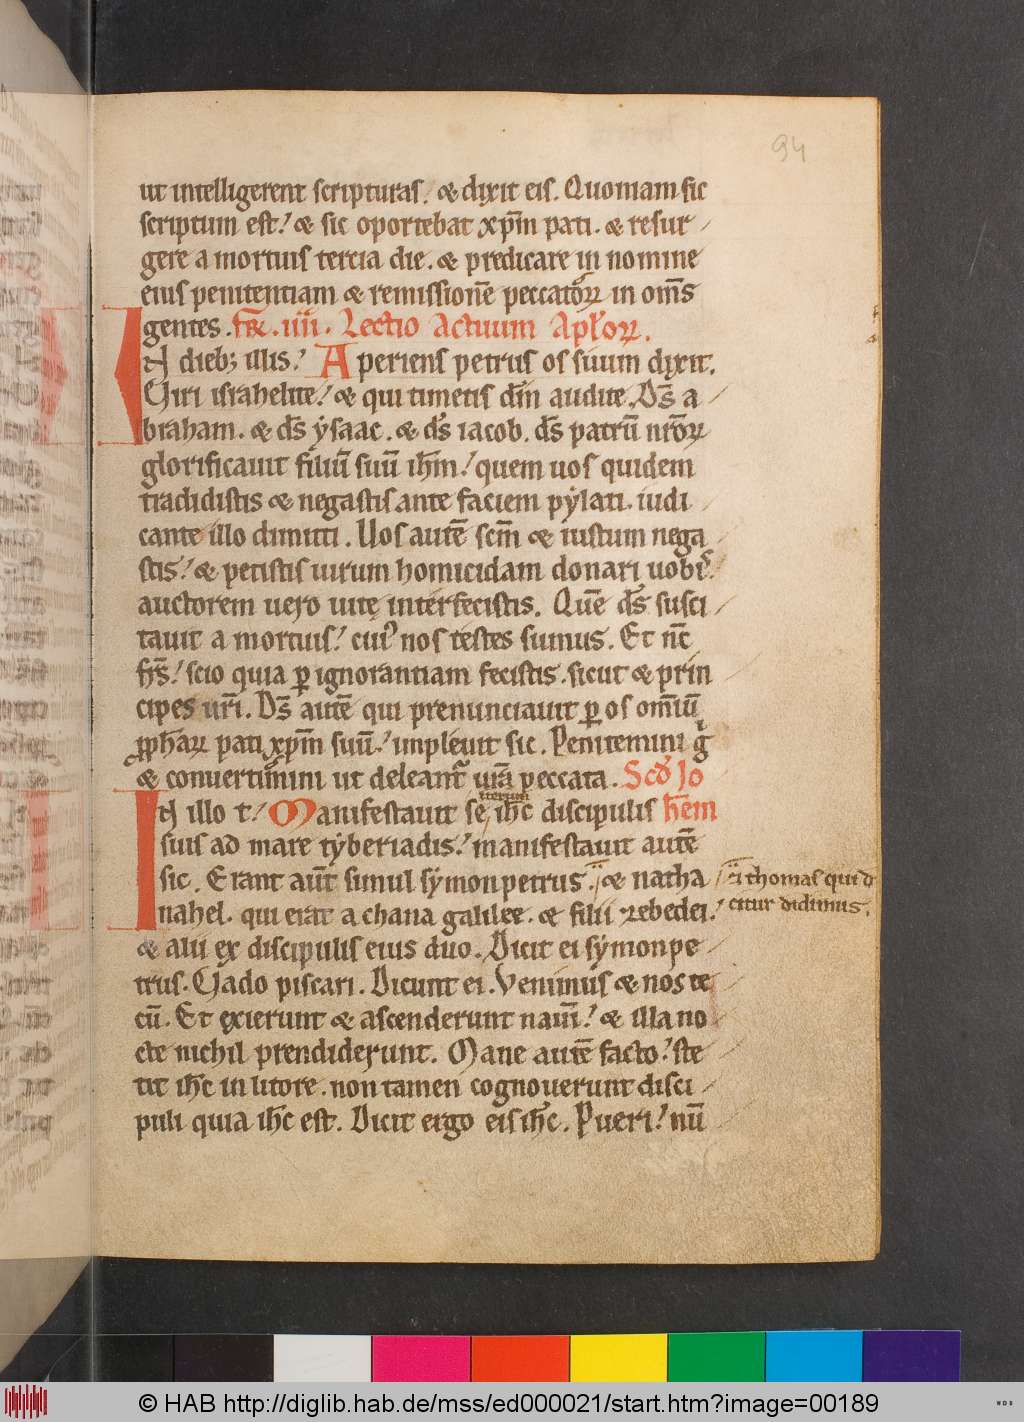 94
ut intelligerent scripturas. & dixit eis. Quoniam sic
scriptum est. & sic oportebat xp̄m pati. & resur
gere a mortuis tercia die. & predicare in nomine
eius penitentiam & remissionē peccatoꝝ in om̄s
gentes. fr̄. iiii. Lectio Actuum Apl'oꝝ.
IN dieb; illis. Aperiens petrus os suum dixit.
Viri israhelite. & qui timetis dm̄ audite. Ds̄ a
braham. & ds̄ ẏsaac. & ds̄ iacob. ds̄ patrū nr̄oꝝ
glorificauit filiū suū ih̄m. quem uos quidem
tradidistis & negastis ante faciem pẏlati. iudi
cante illo dimitti. Uos autē sc̄m & iustum nega
stis. & petistis uirum homicidam donari uobis.
auctorem uero uitę interfecistis. Quē ds̄ susci
tauit a mortuis. cui' nos testes sumus. Et nc̄
frs̄. scio quia ꝑ ignorantiam fecistis. sicut & prin
cipes ur̄i. Ds̄ autē qui prenunciauit ꝑ os omiū
ꝓph̄aꝝ pati xp̄m suū. impleuit sic. Penitemini g̊
& conuertimini ut deleant' ur̄a peccata. Scd̄ Jo
IN illo t. Manifestauit se iterum ih̄c discipulis h̄em
suis ad mare tẏberiadis. manifestauit autē
sic. Erant aūt simul sẏmon petrus. & natha
& thomas qui di
citur didimus.
nahel. qui erat a chana galilee. & filii zebedei.
& alii ex discipulis eius duo. Dicit ei sẏmon pe
trus. Vado piscari. Dicunt ei. Venimus & nos te
cū. Et exierunt & ascenderunt nauī. & illa no
cte nichil prendiderunt. Mane autē facto. ste
tit ih̄c in litore. non tamen cognouerunt disci
puli quia ih̄c est. Dicit ergo eis ih̄c. Pueri. nū
© HAB http://diglib.hab.de/mss/ed000021/start.htm?image=00189